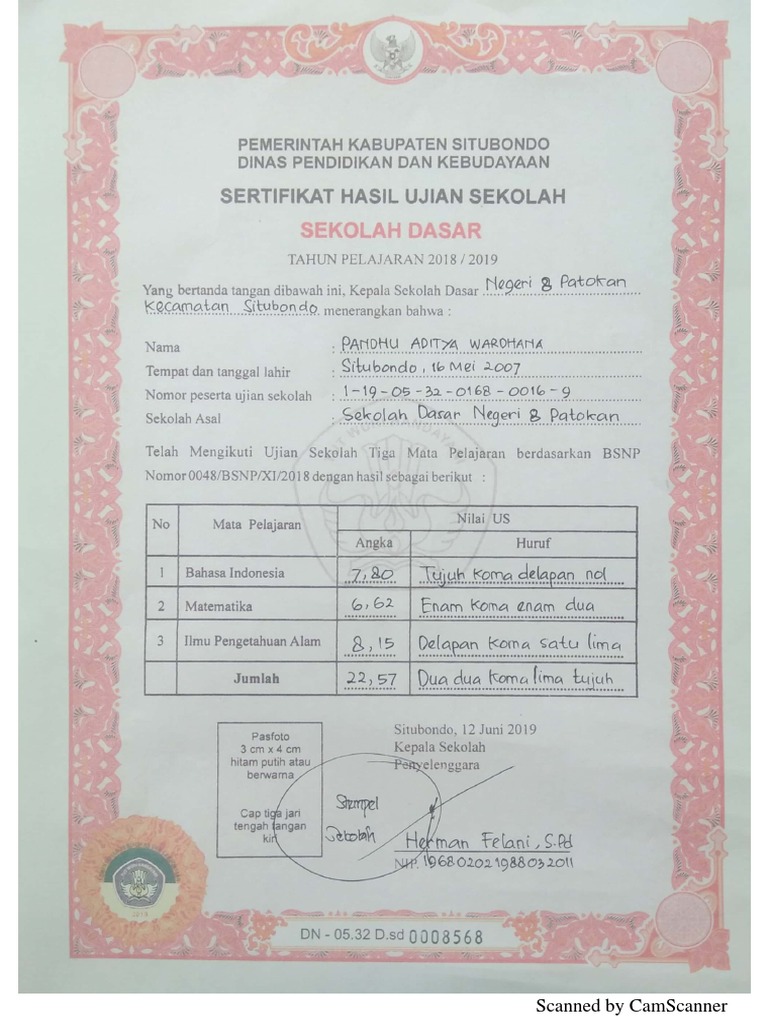 PEMERINTAH KABUPATEN SITUBONDO
DINAS PENDIDIKAN DAN KEBUDAYAAN
SERTIFIKAT HASIL UJIAN SEKOLAH
SEKOLAH DASAR
TAHUN PELAJARAN 2018 / 2019
Yang bertanda tangan dibawah ini, Kepala Sekolah Dasar Negeri 8 Patokan
Kecamatan Situbondo menerangkan bahwa :
Nama : PANDHU ADITYA WARDHANA
Tempat dan tanggal lahir : Situbondo, 16 Mei 2007
Nomor peserta ujian sekolah : 1-19-05-32-0168-0016-9
Sekolah Asal : Sekolah Dasar Negeri 8 Patokan
Telah Mengikuti Ujian Sekolah Tiga Mata Pelajaran berdasarkan BSNP
Nomor 0048/BSNP/XI/2018 dengan hasil sebagai berikut :
No Mata Pelajaran Nilai US
Angka Huruf
1 Bahasa Indonesia 7,80 Tujuh koma delapan nol
2 Matematika 6,62 Enam koma enam dua
3 Ilmu Pengetahuan Alam 8,15 Delapan koma satu lima
Jumlah 22,57 Dua dua koma lima tujuh
Situbondo, 12 Juni 2019
Kepala Sekolah
Penyelenggara
Pasfoto
3 cm x 4 cm
hitam putih atau
berwarna
Cap tiga jari
tengah tangan
kiri
Stempel
Sekolah
Herman Felani, S.Pd
NIP. 196802021988032011
2019
DN - 05.32 D.sd 0008568
Scanned by CamScanner